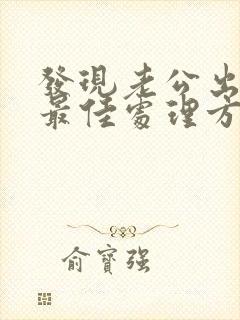 發現老公出
最佳處理方
俞寶強